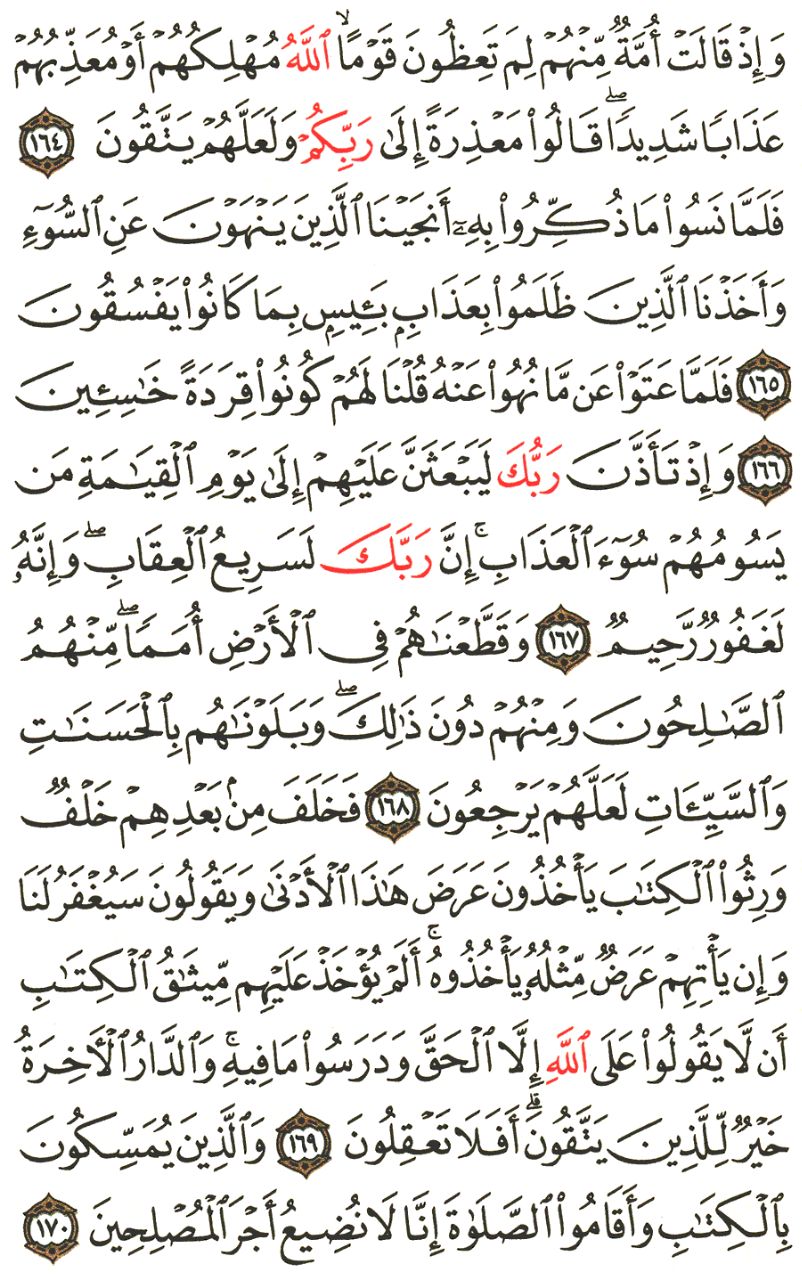 وَإِذۡ قَالَتۡ أُمَّةٞ مِّنۡهُمۡ لِمَ تَعِظُونَ قَوۡمًا ٱللَّهُ مُهۡلِكُهُمۡ أَوۡ مُعَذِّبُهُمۡ
عَذَابٗا شَدِيدٗاۖ قَالُواْ مَعۡذِرَةً إِلَىٰ رَبِّكُمۡ وَلَعَلَّهُمۡ يَتَّقُونَ ١٦٤
فَلَمَّا نَسُواْ مَا ذُكِّرُواْ بِهِۦٓ أَنجَيۡنَا ٱلَّذِينَ يَنۡهَوۡنَ عَنِ ٱلسُّوٓءِ
وَأَخَذۡنَا ٱلَّذِينَ ظَلَمُواْ بِعَذَابِۭ بَـِٔيسِۭ بِمَا كَانُواْ يَفۡسُقُونَ
١٦٥ فَلَمَّا عَتَوۡاْ عَن مَّا نُهُواْ عَنۡهُ قُلۡنَا لَهُمۡ كُونُواْ قِرَدَةً خَٰسِـِٔينَ
١٦٦ وَإِذۡ تَأَذَّنَ رَبُّكَ لَيَبۡعَثَنَّ عَلَيۡهِمۡ إِلَىٰ يَوۡمِ ٱلۡقِيَٰمَةِ مَن
يَسُومُهُمۡ سُوٓءَ ٱلۡعَذَابِۚ إِنَّ رَبَّكَ لَسَرِيعُ ٱلۡعِقَابِۖ وَإِنَّهُۥ
لَغَفُورٞ رَّحِيمٞ ١٦٧ وَقَطَّعۡنَٰهُمۡ فِي ٱلۡأَرۡضِ أُمَمٗاۖ مِّنۡهُمُ
ٱلصَّٰلِحُونَ وَمِنۡهُمۡ دُونَ ذَٰلِكَۖ وَبَلَوۡنَٰهُم بِٱلۡحَسَنَٰتِ
وَٱلسَّيِّـَٔاتِ لَعَلَّهُمۡ يَرۡجِعُونَ ١٦٨ فَخَلَفَ مِنۢ بَعۡدِهِمۡ خَلۡفٞ
وَرِثُواْ ٱلۡكِتَٰبَ يَأۡخُذُونَ عَرَضَ هَٰذَا ٱلۡأَدۡنَىٰ وَيَقُولُونَ سَيُغۡفَرُ لَنَا
وَإِن يَأۡتِهِمۡ عَرَضٞ مِّثۡلُهُۥ يَأۡخُذُوهُۚ أَلَمۡ يُؤۡخَذۡ عَلَيۡهِم مِّيثَٰقُ ٱلۡكِتَٰبِ
أَن لَّا يَقُولُواْ عَلَى ٱللَّهِ إِلَّا ٱلۡحَقَّ وَدَرَسُواْ مَا فِيهِۚ وَٱلدَّارُ ٱلۡأٓخِرَةُ
خَيۡرٞ لِّلَّذِينَ يَتَّقُونَۗ أَفَلَا تَعۡقِلُونَ ١٦٩ وَٱلَّذِينَ يُمَسِّكُونَ
بِٱلۡكِتَٰبِ وَأَقَامُواْ ٱلصَّلَوٰةَ إِنَّا لَا نُضِيعُ أَجۡرَ ٱلۡمُصۡلِحِينَ ١٧٠